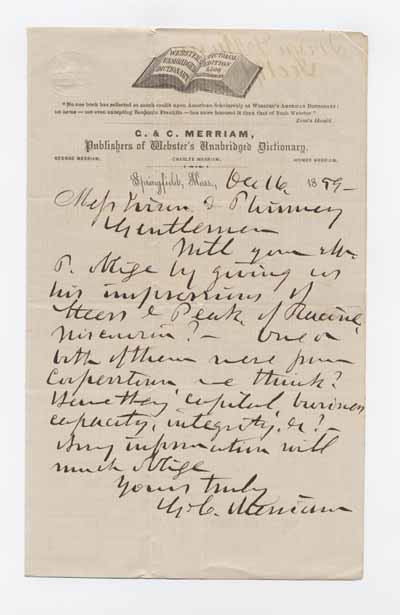 WEBSTER'S UNABRIDGED DICTIONARY
PICTORIAL EDITION 1500
"No one book has reflected so much credit upon American Scholarship as WEBSTER'S AMERICAN DICTIONARY:
no name — not even excepting Benjamin Franklin — has more honored it than that of Noah Webster."
Zion's Herald.
G. & C. MERRIAM,
Publishers of Webster's Unabridged Dictionary.
GEORGE MERRIAM. CHARLES MERRIAM. HOMER MERRIAM.
Springfield, Mass., Dec 16, 1859-
Mess Ivison & Phinney
Gentlemen
Will you & Mr.
P. oblige by giving us
his impressions of
& Peak, of Racine,
Wisconsin? - One or
both of them were from
Cooperstown we think?
Have they capital, business
capacity, integrity, &c? -
Any information will
much oblige
Yours truly
G & C. Merriam